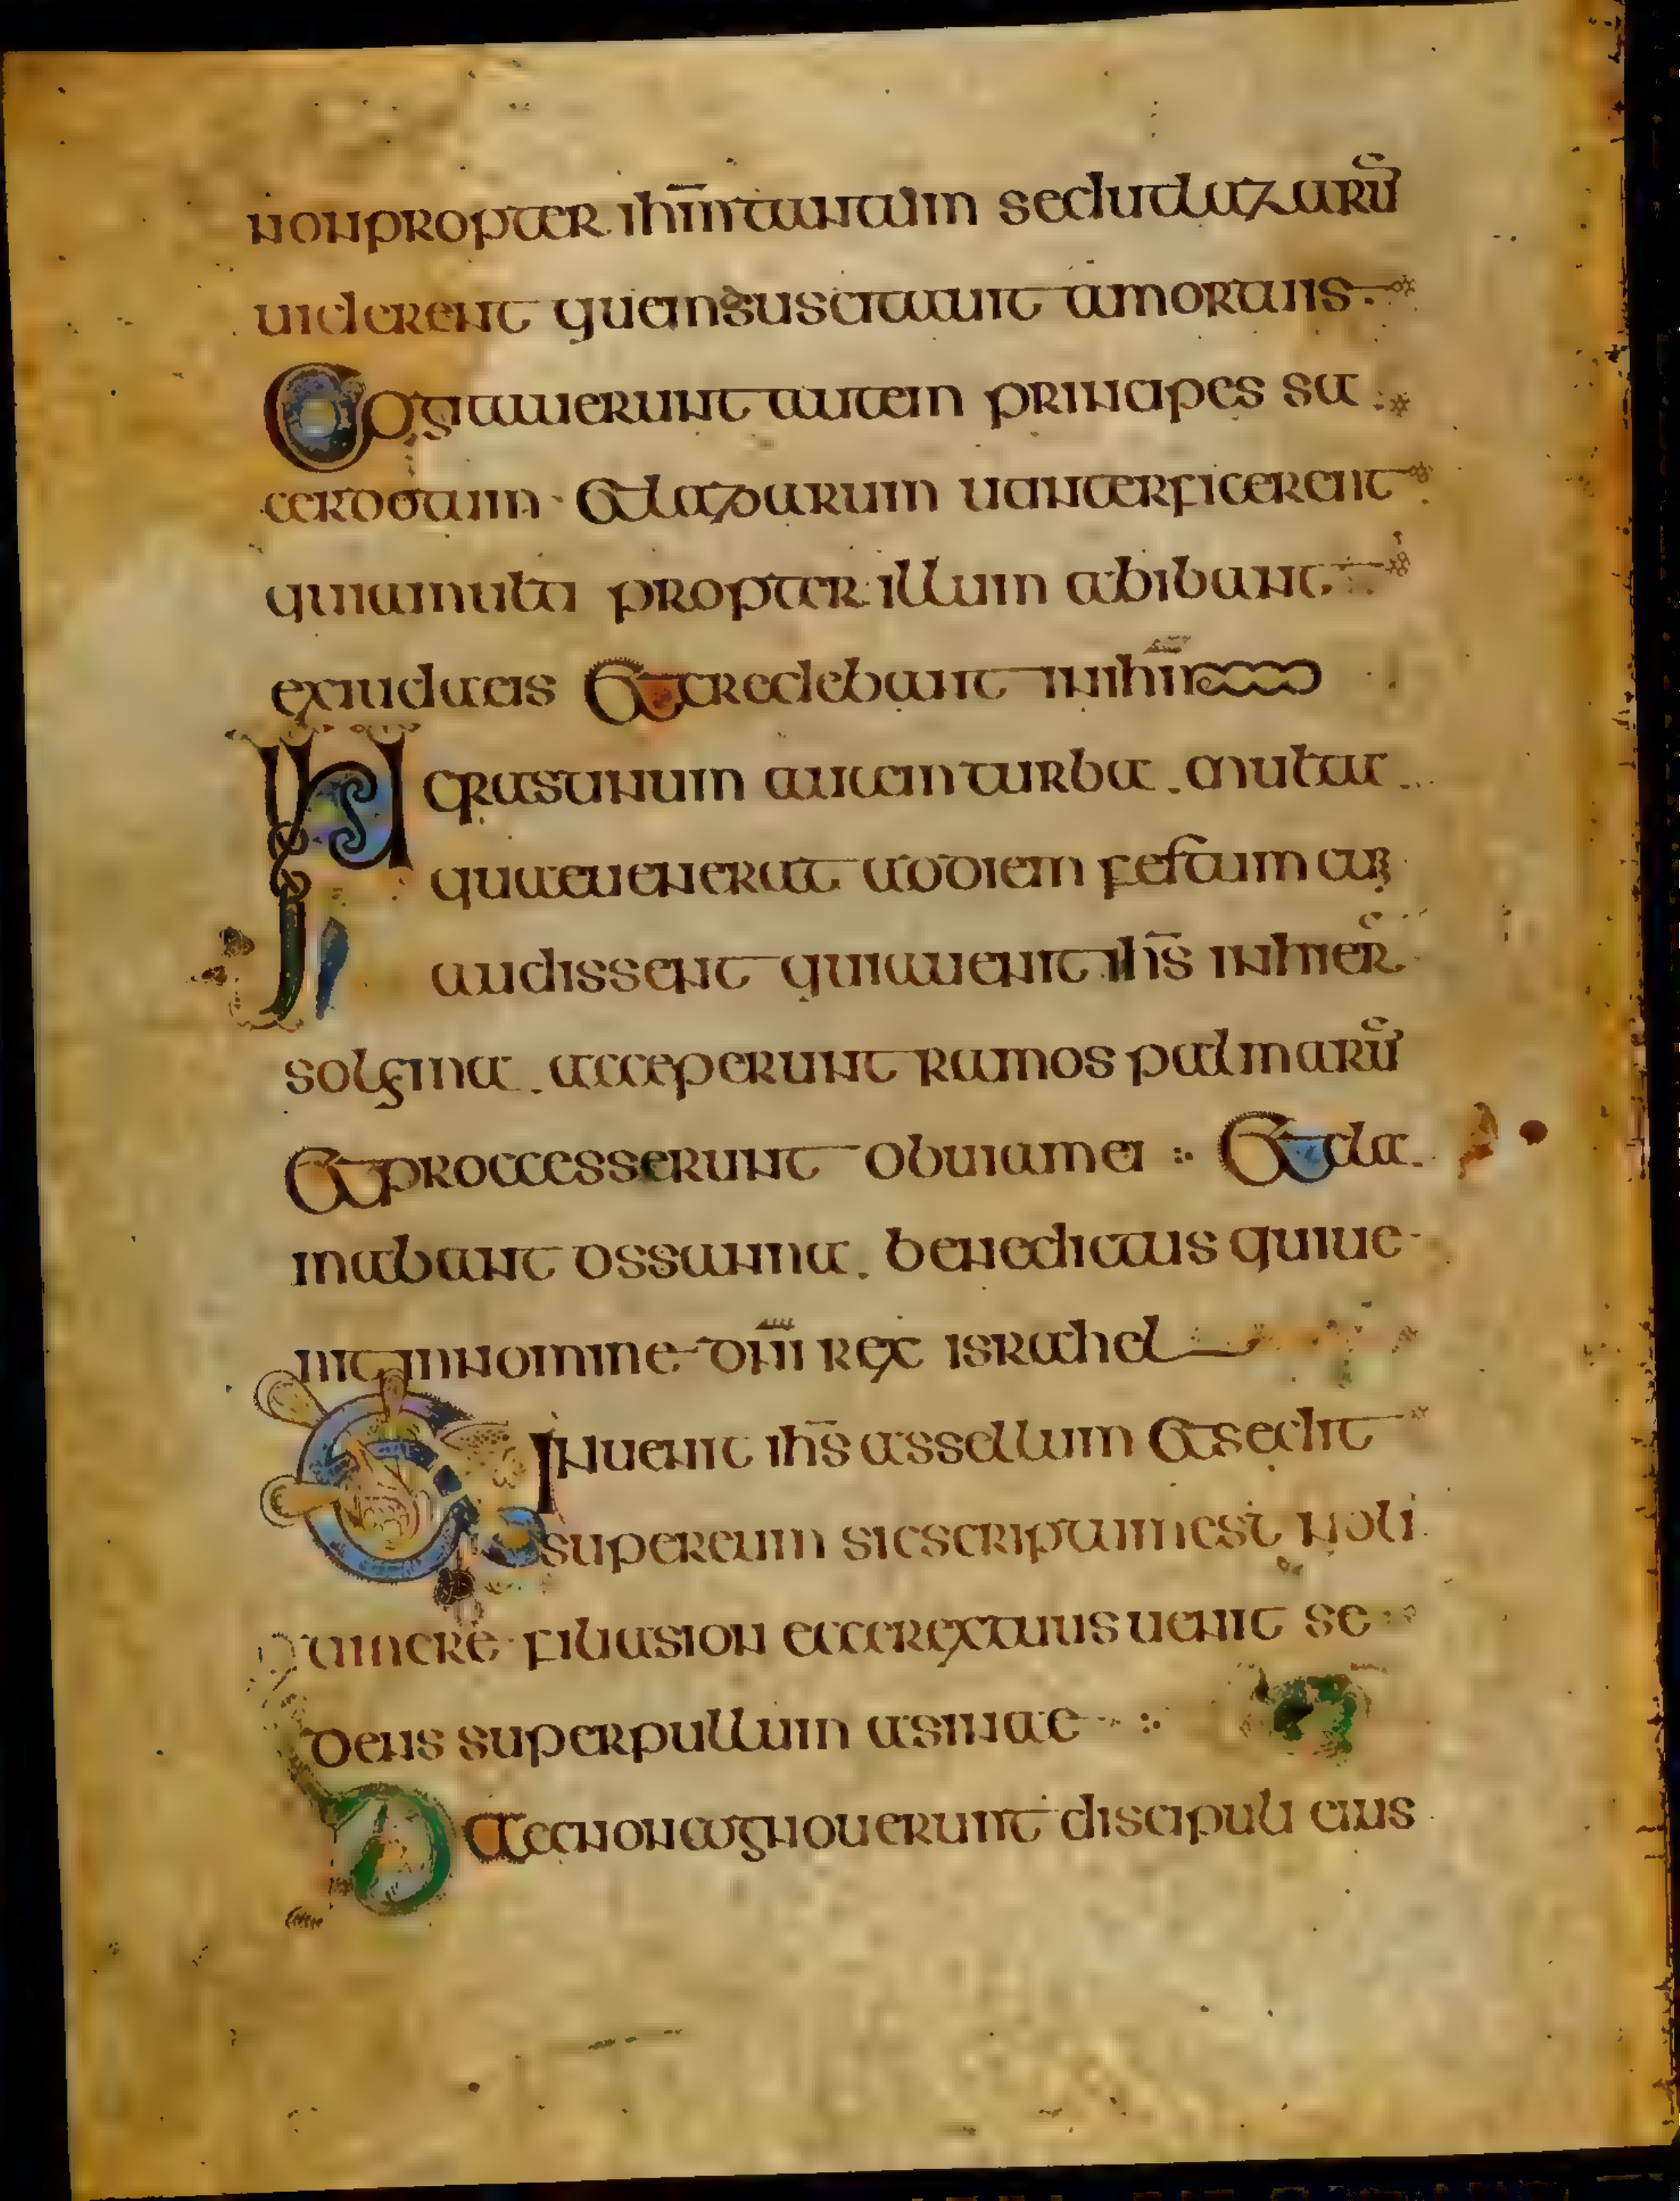 non propter ihm tantum sed ut lazarū
uiderent quem suscitauit a mortuis
Cogitauerunt autem principes sa
cerdotum et lazarum ut interficerent
quia multi propter illum abibant
ex iudaeis et credebant in ihm
IN crastinum autem turba multa
quae uenerat ad diem festum cū
audissent quia uenit ihs in hier
solyma acceperunt ramos palmarū
et proccesserunt obuiam ei et cla
mabant ossanna benedictus qui ue
nit in nomine dni rex israhel
Et inuenit ihs assellum et sedit
super eum sic scriptum est noli
timere filia sion ecce rex tuus uenit se
dens super pullum asinae
Haec non cognouerunt discipuli eius